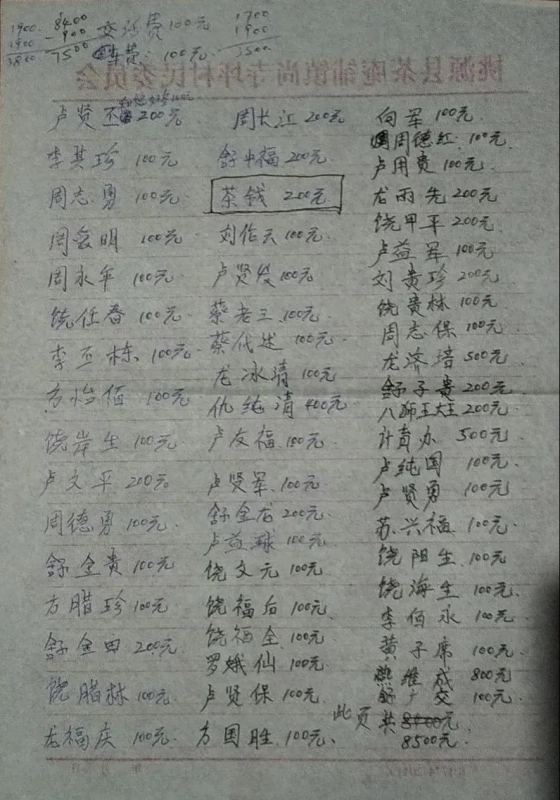 1900.
1900
3800
8400
- 900
7500
交通费 100元
车费: 100元.
1700
1900
3500
桃源县茶庵铺镇尚寺坪村民委员会
卢贤丕 200元
李其珍 100元
周志勇 100元
周会明 100元
周永年 100元
饶任春 100元
李丕栋 100元
方怡佰 100元
饶岸生 100元
卢文平 200元
周德勇 100元
舒金贵 100元
方腊珍 100元
舒金田 200元
饶腊林 100元
龙福庆 100元
周长江 200元
舒中福 200元
茶钱 200元
刘佐天 100元
卢贤俊 100元
蔡老三 100元
蔡代述 100元
龙冰清 100元
仇纯清 400元
卢友福 100元
卢贤军 100元
舒金龙 200元
卢益球 100元
饶文元 100元
饶福后 100元
饶福全 100元
罗娥仙 100元
卢贤保 100元
方国胜 100元
向军 100元
周德红 100元
卢用贵 100元
龙雨先 200元
饶甲平 200元
卢益军 100元
刘贵珍 200元
饶贵林 100元
周志保 100元
龙济培 500元
舒子贵 200元
八狮王大王 200元
计育办 500元
卢纯国 100元
卢贤勇 100元
苏兴福 100元
饶阳生 100元
饶海生 100元
李佰永 100元
黄子席 100元
熊维成 800元
舒广交 100元
此页共 8400元
8500元